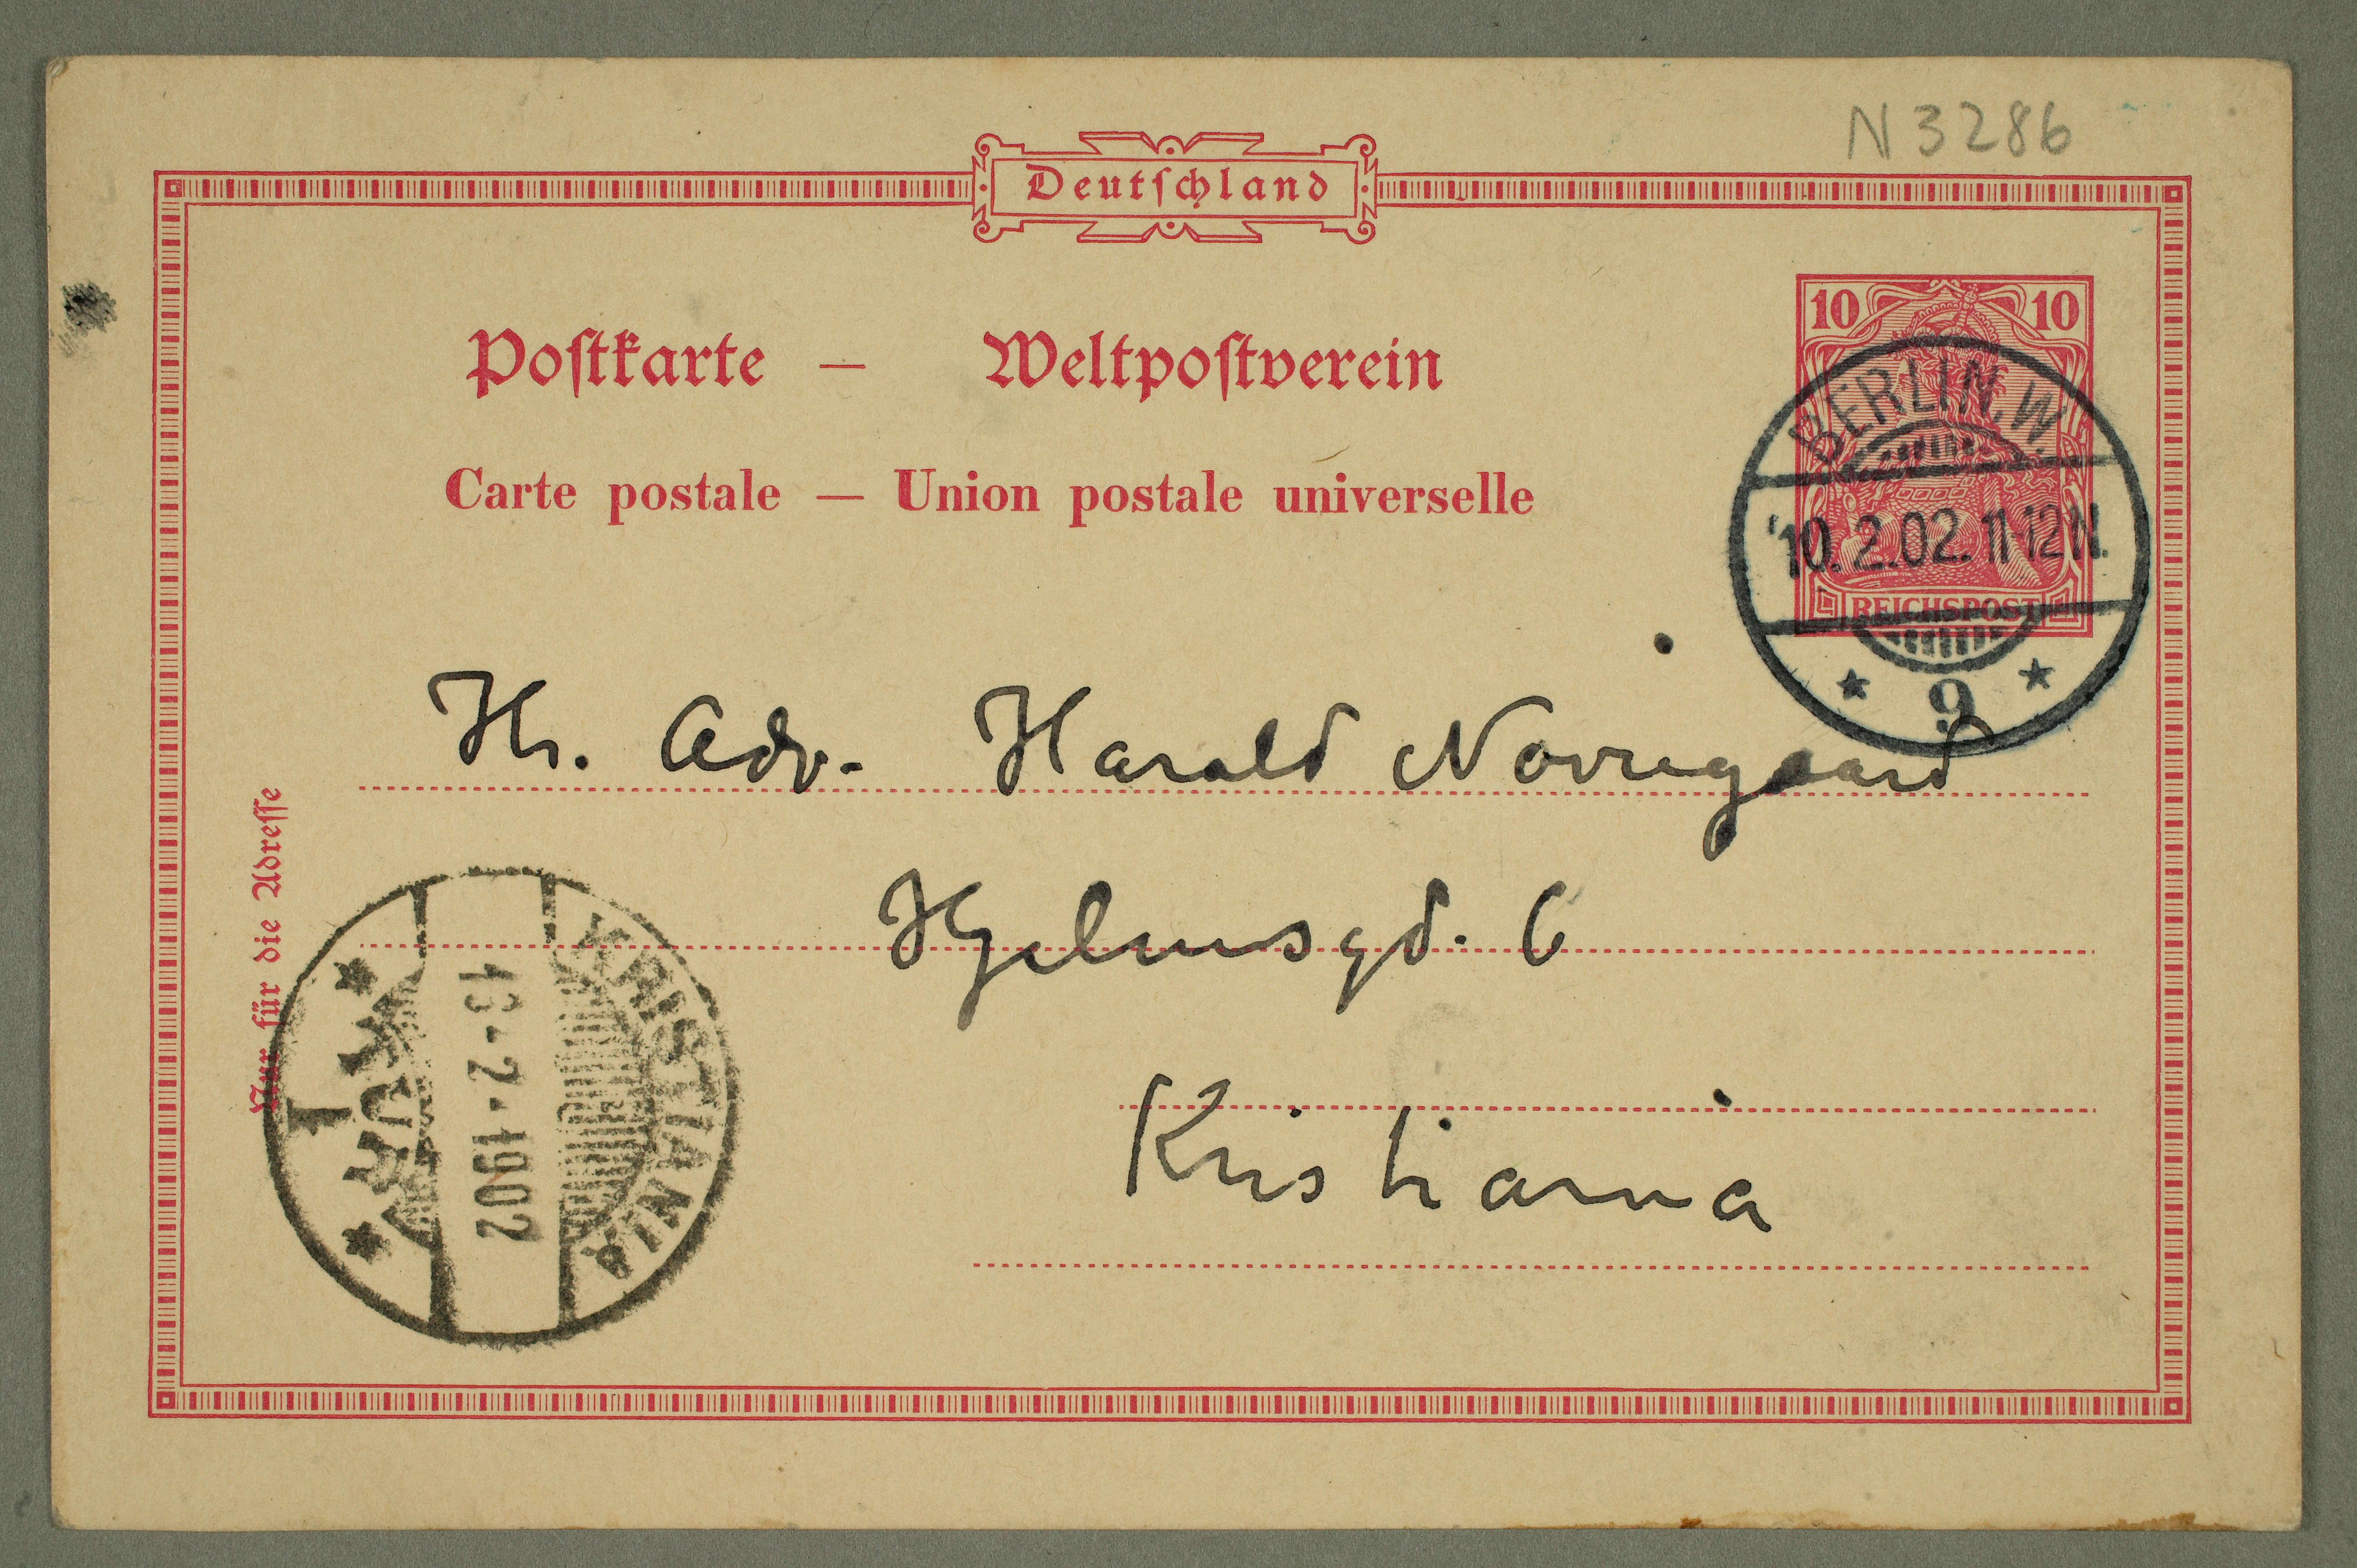 N 3286
Deutſchland
Poſtkarte — Weltpoſtverein
Carte postale — Union postale universelle
10 10
REICHSPOST
BERLIN.W.
10.2.02.11-12N.
* 9 *
Hr. Adv. Harald Nørregaard
Hjelmsgd. 6
Kristiania
Nur für die Adreſſe
KRISTIANIA
13-2-1902